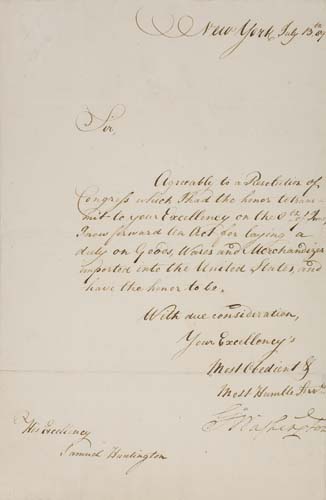 New York, July 13th 89
Sir,
Agreeably to a Resolution of
Congress which I had the honor to trans-
mit to your Excellency on the 8th of June,
I now forward an Act for laying a
duty on Goods, Wares and Merchandizes
imported into the United States, and
have the honor to be.
With due consideration,
Your Excellency's
Most Obedient &
Most Humble Servt
G:Washington
His Excellency
Samuel Huntington